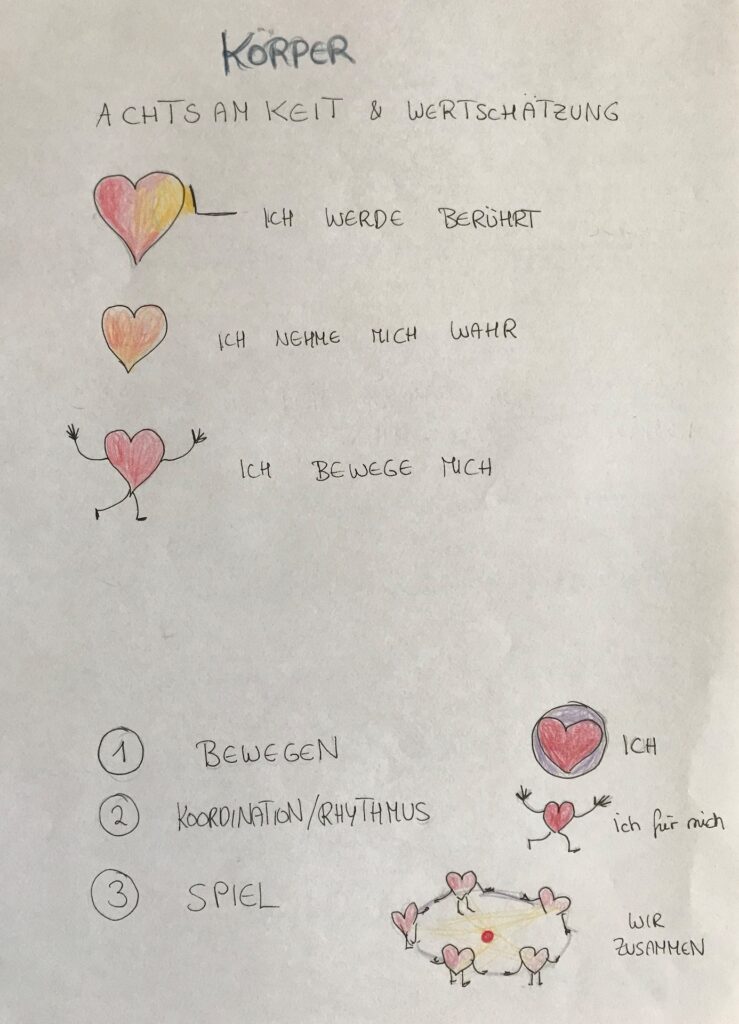 KÖRPER
ACHTSAMKEIT & WERTSCHÄTZUNG
ICH WERDE BERÜHRT
ICH NEHME MICH WAHR
ICH BEWEGE MICH
1 BEWEGEN ICH
2 KOORDINATION/RHYTHMUS ich für mich
3 SPIEL WIR
ZUSAMMEN